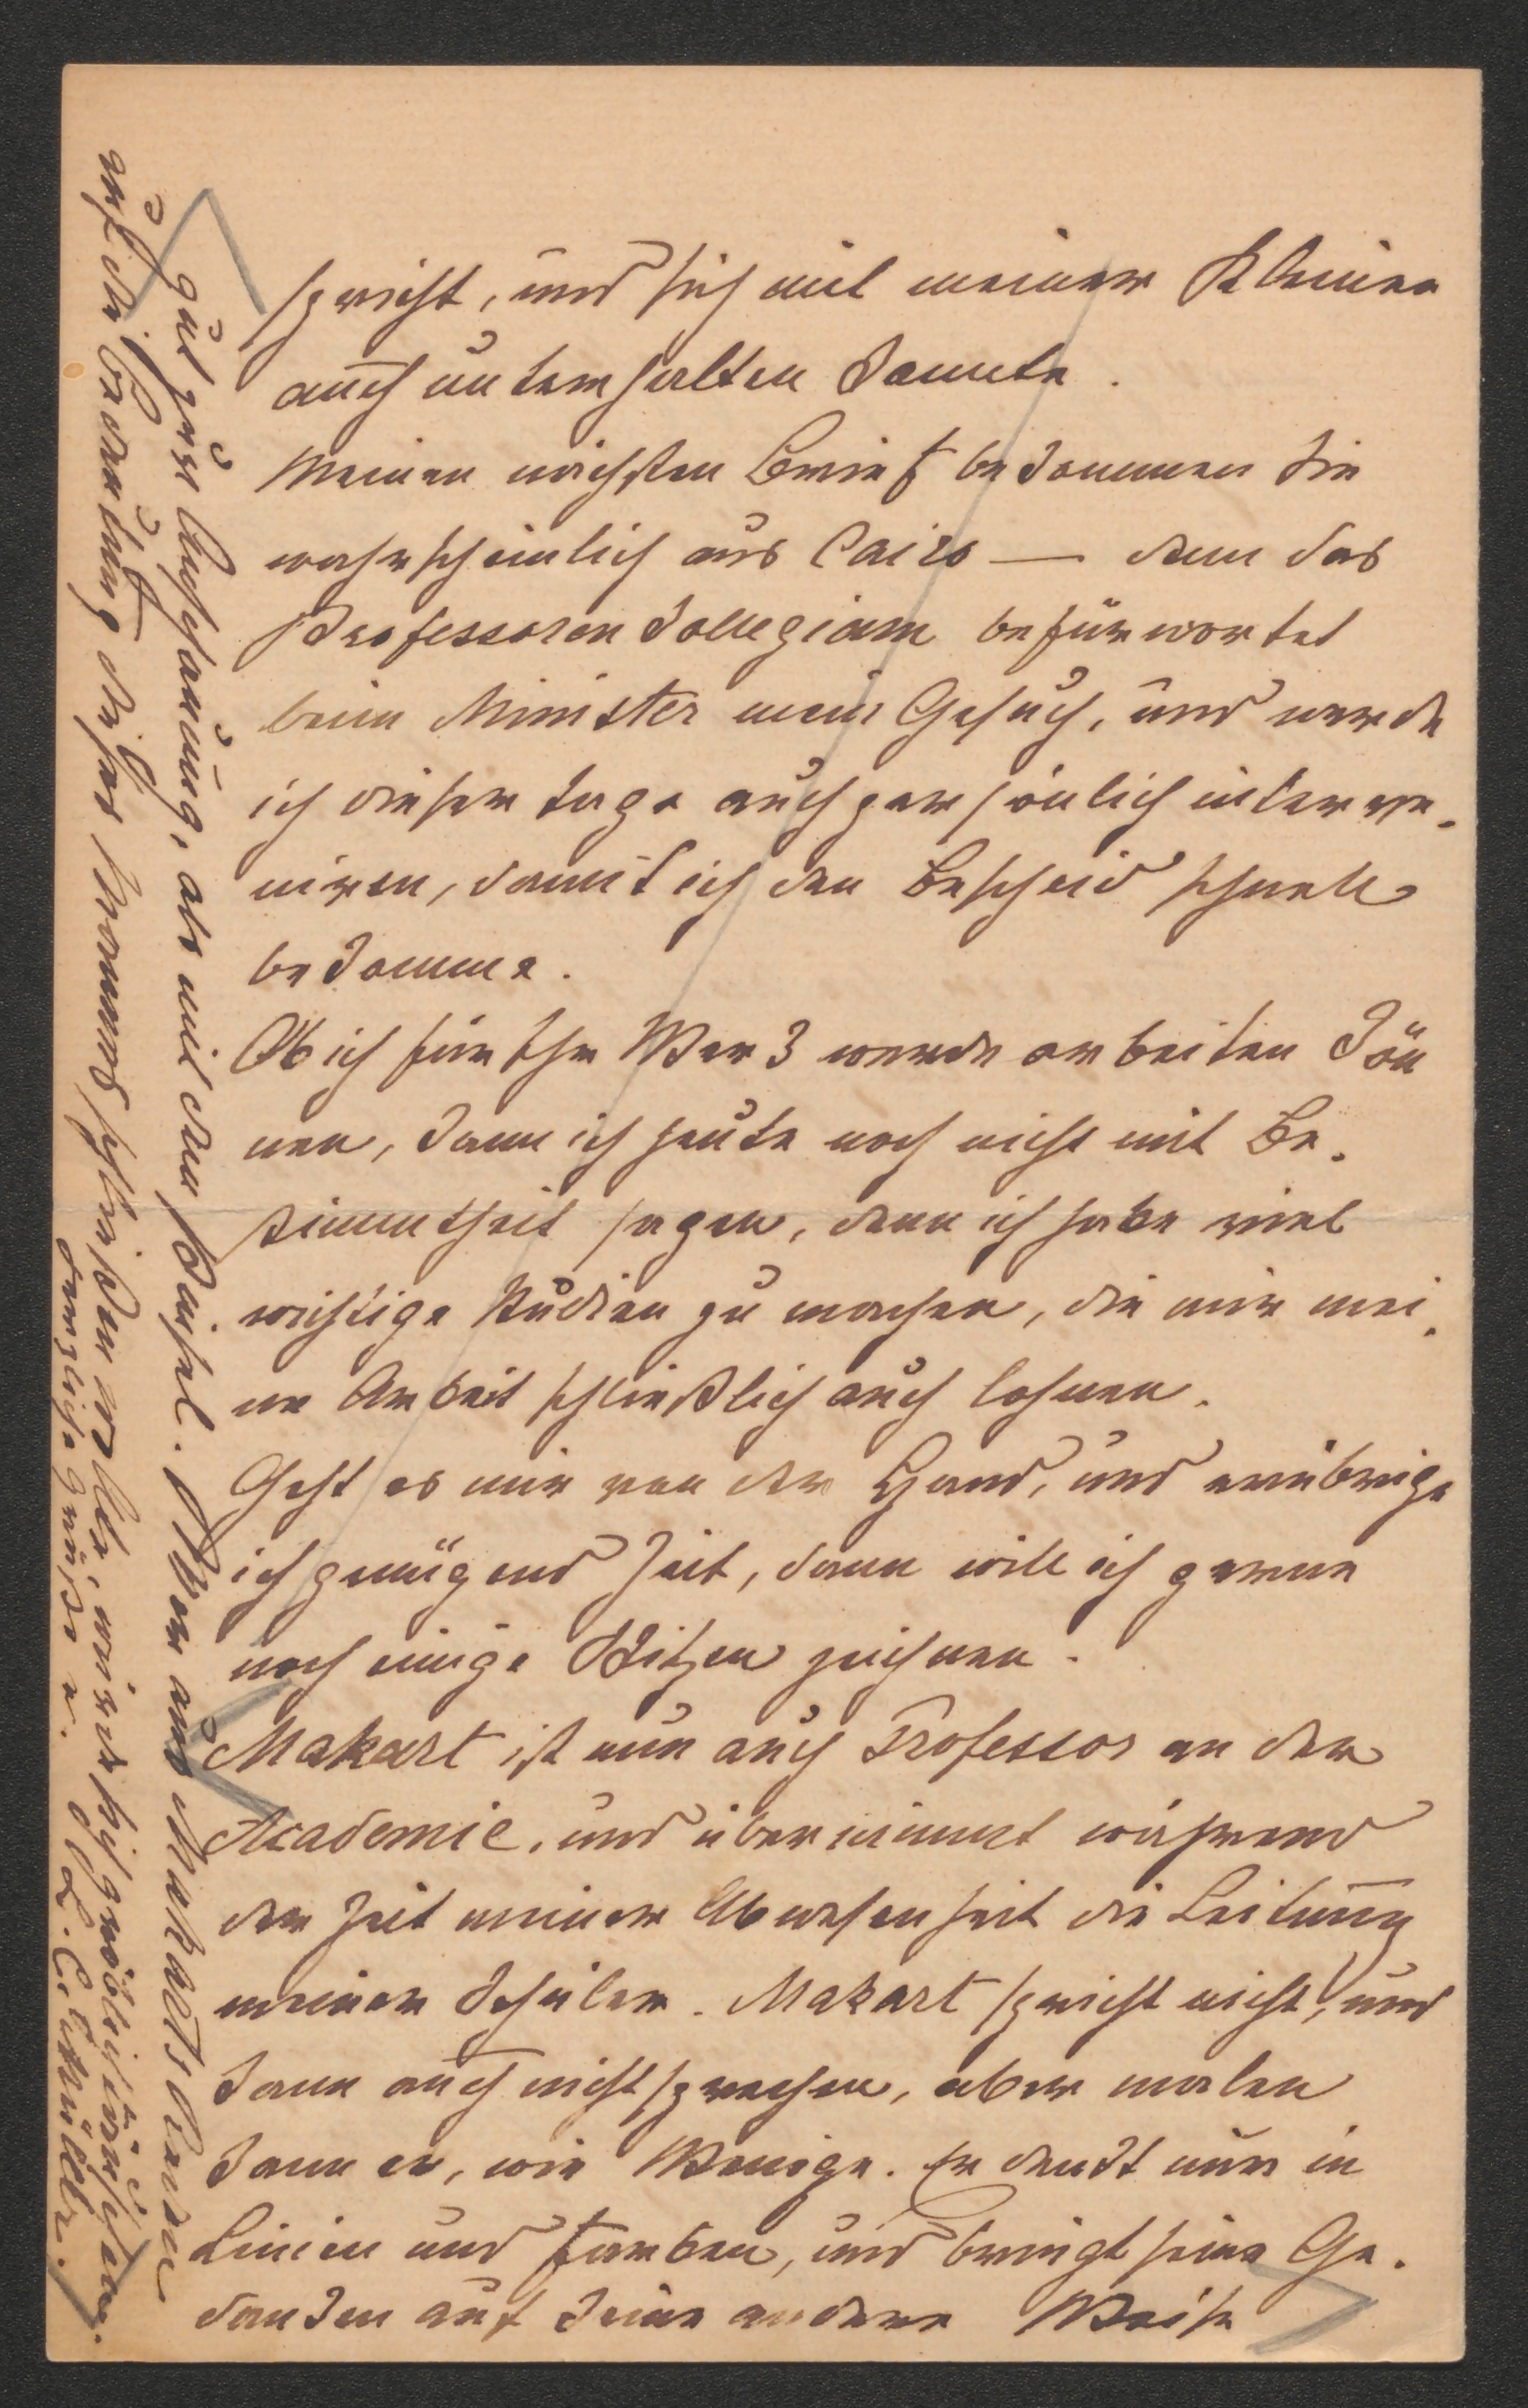 spricht, und sich mit meiner Kleinen
auch unterhalten konnte.
Meinen nächsten Brief bekommen Sie
wahrscheinlich aus Cairo — denn das
Professoren kollegium befürwortet
beim Minister mein Gesuch, und werde
ich dieser Tage auch persönlich interve-
niren, damit ich den Bescheid schnell
bekomme.
Ob ich für Ihr Werk werde arbeiten kön
nen, kann ich heute noch nicht mit Be-
stimmtheit sagen, denn ich habe viel
wichtige Studien zu machen, die mir mei-
ne Arbeit schließlich auch lohnen.
Geht es mir von der Hand, und erübrige
ich genügend Zeit, dann will ich gerne
noch einige Skitzen zeichnen.
Makart ist nun auch Professor an der
Academie, und übernimmt während
der Zeit meiner Abwesenheit die Leitung
meiner Schüler. Makart spricht nicht, und
kann auch nicht sprechen, aber malen
kann er, wie Wenige. Er denkt nur in
Linien und Farben, und bringt seine Ge-
danken auf keine andere Weise
zur Anschauung, als mit dem Pinsel. Wer aus Makarts Reden
auf die Bedeutung dieses Mannes schließen wollte, würde sich gröblich täuschen.
herzliche Grüße v. L. C. Müller.